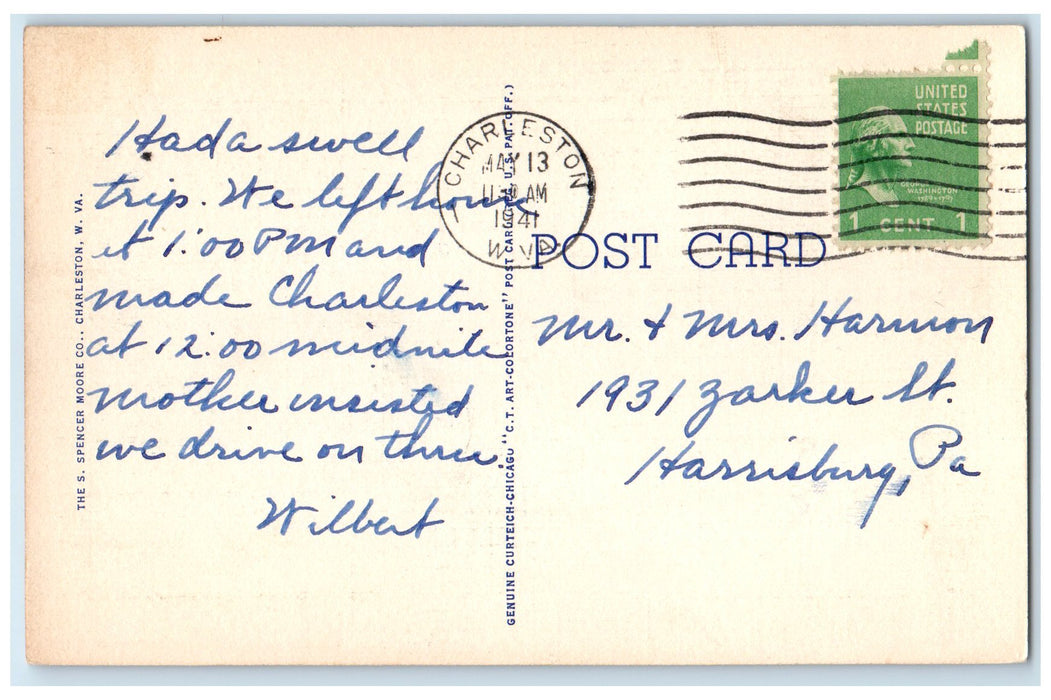 Had a swell
trip. We left home
at 1:00 PM and
made Charleston
at 12:00 midnite
Mother insisted
we drive on thru.
Wilbert
THE S. SPENCER MOORE CO., CHARLESTON, W. VA.
GENUINE CURTEICH-CHICAGO "C.T. ART-COLORTONE" POST CARD (REG. U.S. PAT. OFF.)
CHARLESTON
MAY 13
AM
1941
W. VA.
UNITED
STATES
POSTAGE
GEORGE
WASHINGTON
1789-1797
1 CENT 1
POST CARD
Mr. & Mrs. Harmon
1931 Zarker St.
Harrisburg, Pa